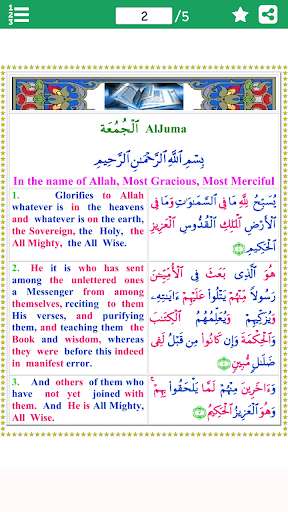 1 2 3
2 /5
ٱلْجُمُعَة AlJuma
بِسْمِ ٱللَّهِ ٱلرَّحْمَـٰنِ ٱلرَّحِيمِ
In the name of Allah, Most Gracious, Most Merciful
1. Glorifies to Allah
whatever is in the heavens
and whatever is on the earth,
the Sovereign, the Holy, the
All Mighty, the All Wise.
يُسَبِّحُ لِلَّهِ مَا فِى ٱلسَّمَـٰوَٰتِ وَمَا فِى
ٱلْأَرْضِ ٱلْمَلِكِ ٱلْقُدُّوسِ ٱلْعَزِيزِ
ٱلْحَكِيمِ
2. He it is who has sent
among the unlettered ones
a Messenger from among
themselves, reciting to them
His verses, and purifying
them, and teaching them the
Book and wisdom, whereas
they were before this indeed
in manifest error.
هُوَ ٱلَّذِى بَعَثَ فِى ٱلْأُمِّيِّـۧنَ
رَسُولًا مِّنْهُمْ يَتْلُوا۟ عَلَيْهِمْ ءَايَـٰتِهِۦ
وَيُزَكِّيهِمْ وَيُعَلِّمُهُمُ ٱلْكِتَـٰبَ
وَٱلْحِكْمَةَ وَإِن كَانُوا۟ مِن قَبْلُ لَفِى
ضَلَـٰلٍ مُّبِينٍ
3. And others of them who
have not yet joined with
them. And He is All Mighty,
All Wise.
وَءَاخَرِينَ مِنْهُمْ لَمَّا يَلْحَقُوا۟ بِهِمْ ۚ
وَهُوَ ٱلْعَزِيزُ ٱلْحَكِيمُ